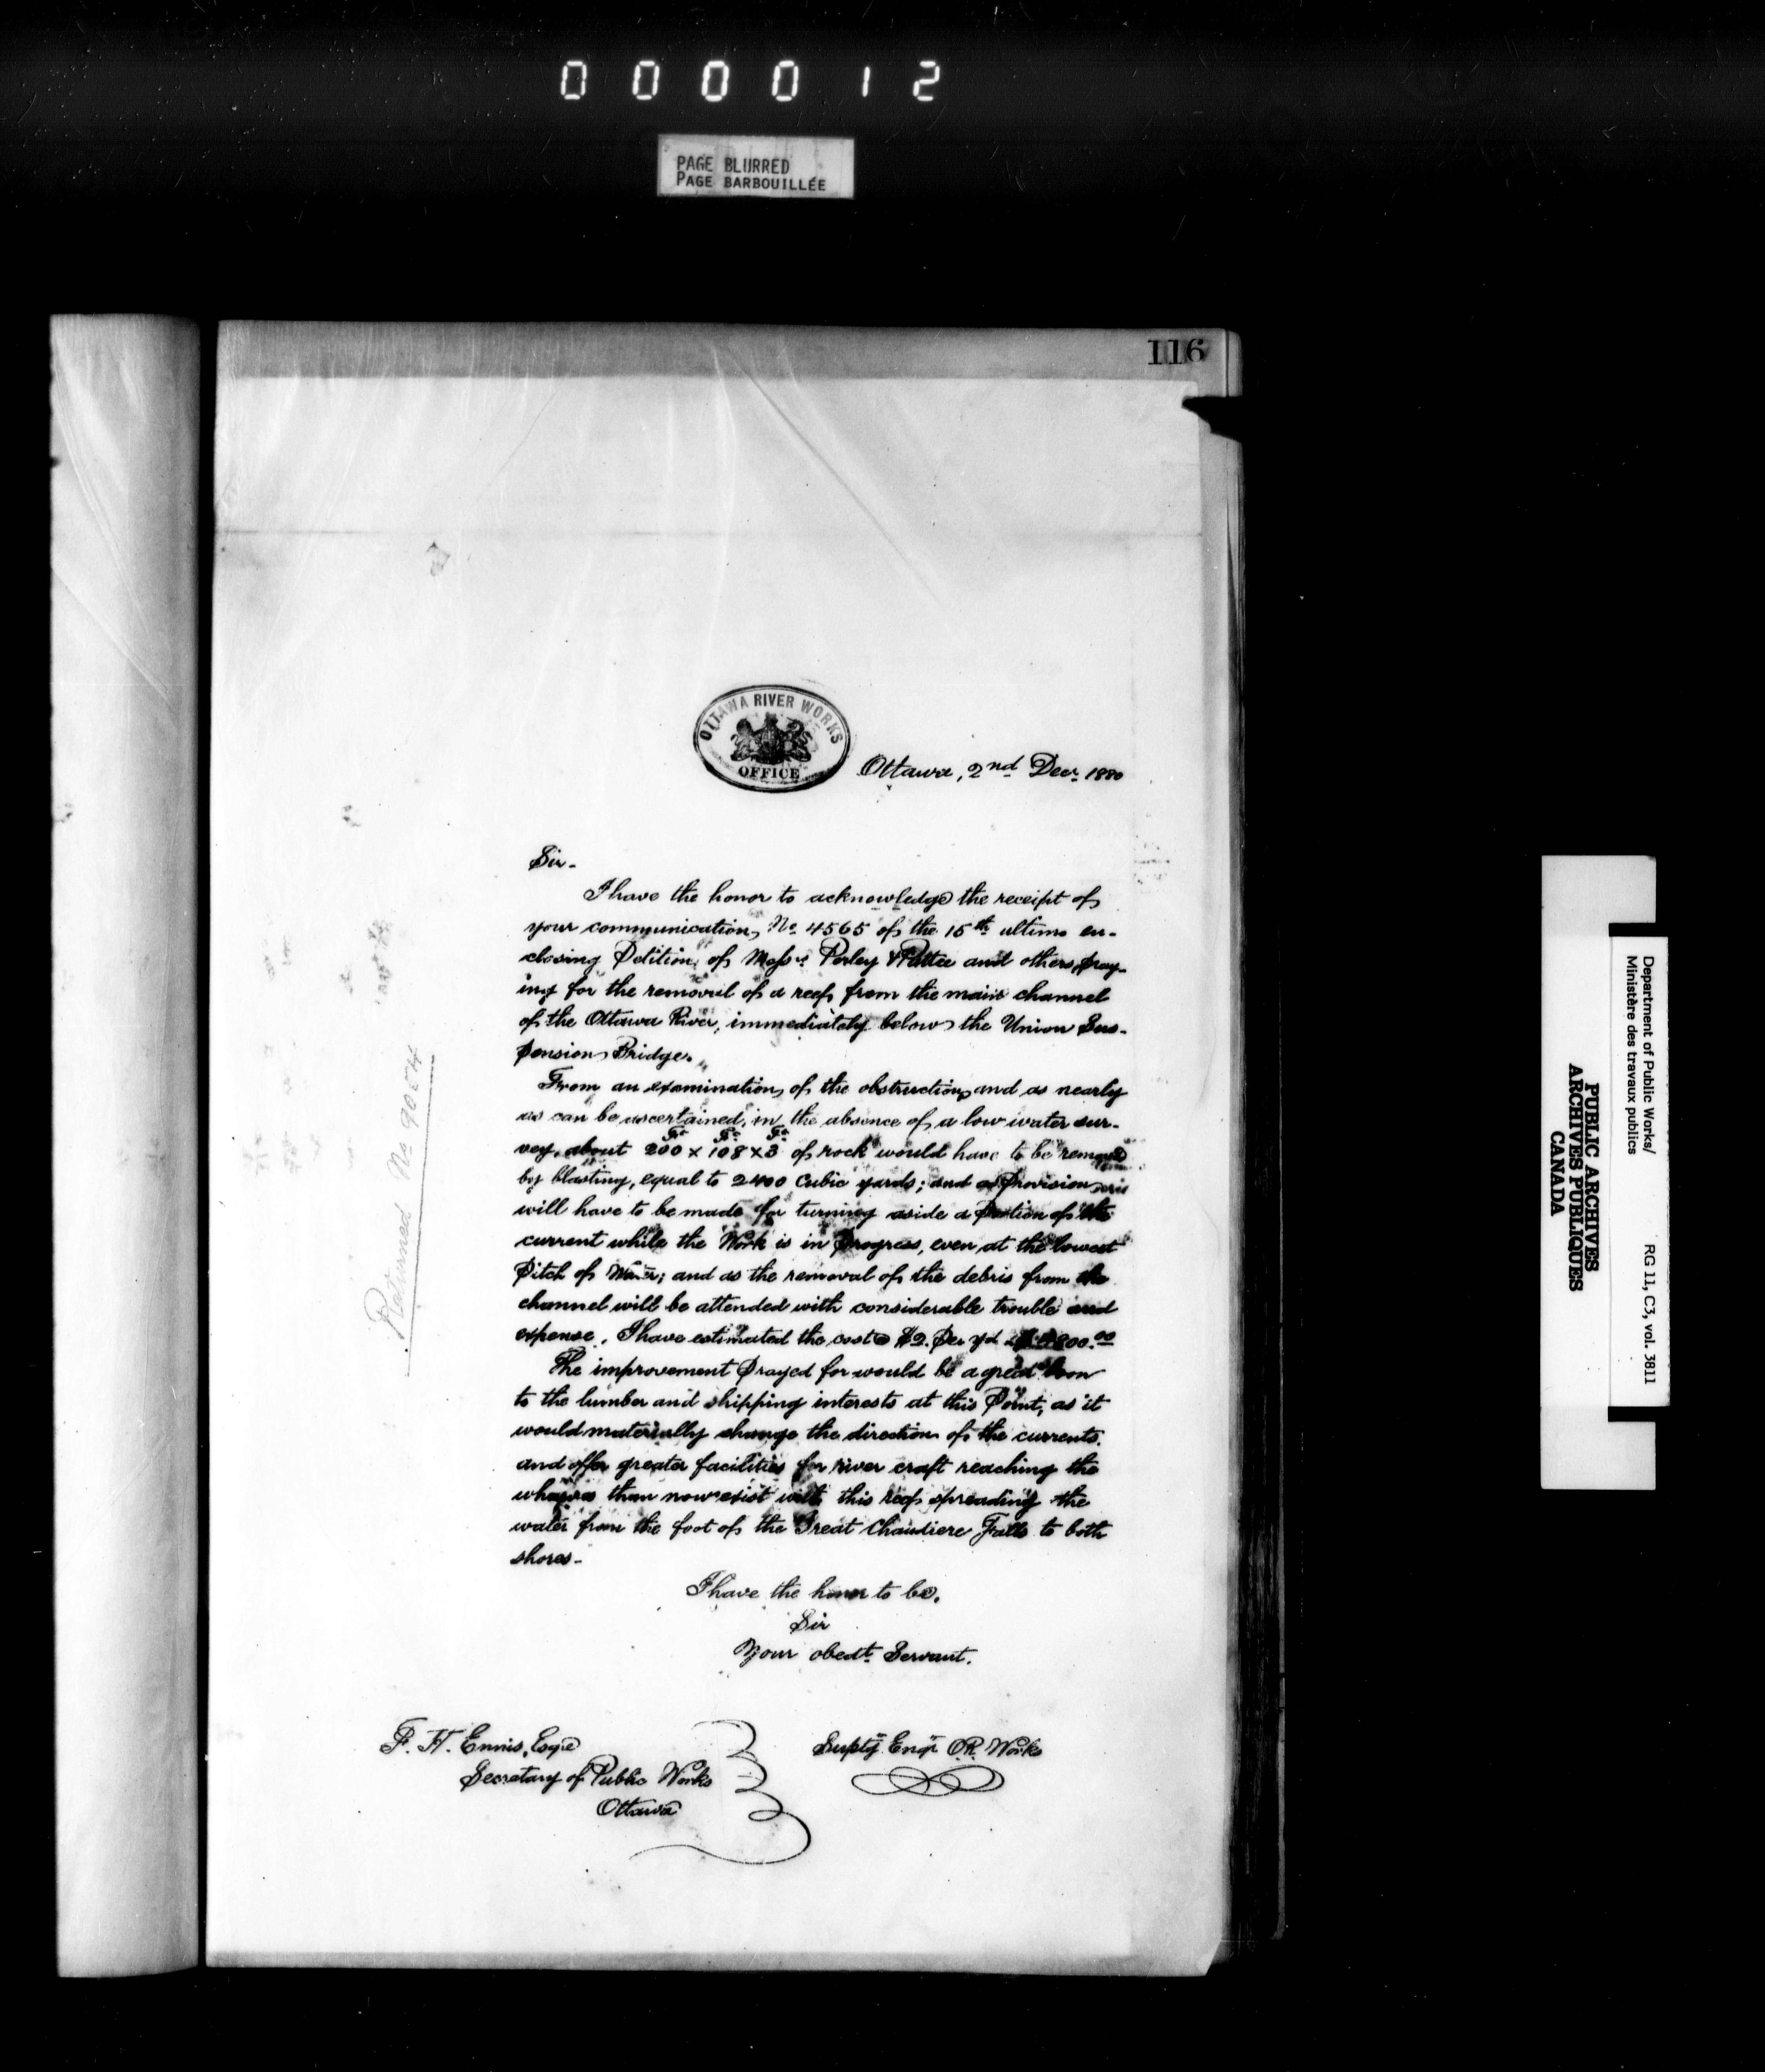 000012
PAGE BLURRED
PAGE BARBOUILLÉE
116
OTTAWA RIVER WORKS
OFFICE
Ottawa, 2nd Decr. 1880
Sir -
I have the honor to acknowledge the receipt of
your communication, No. 4565 of the 15th ultimo en-
closing Petition of Messrs Perley & Pattee and others, pray-
ing for the removal of a reef from the main channel
of the Ottawa River, immediately below the Union Sus-
pension Bridge.
From an examination of the obstruction, and as nearly
as can be ascertained, in the absence of a low water sur-
vey, about 200 Ft x 108 Ft x 3 Ft of rock would have to be removed
by blasting, equal to 2400 Cubic yards; and as provision
will have to be made for turning aside a portion of the
current while the Work is in Progress, even at the lowest
Pitch of Water; and as the removal of the debris from the
channel will be attended with considerable trouble and
expense, I have estimated the cost @ $2. Per yd = $4800.00
The improvement Prayed for would be a great boon
to the lumber and shipping interests at this Point, as it
would materially change the direction of the currents,
and offer greater facilities for river craft reaching the
wharves than now exist with this reef spreading the
water from the foot of the Great Chaudiere Falls to both
shores -
I have the honor to be,
Sir
Your obedt. Servant.
Suptg. Engr. O.R. Works
F. H. Ennis, Esqre
Secretary of Public Works
Ottawa
Returned No. 90
Department of Public Works/
Ministère des travaux publics
RG 11, C3, vol. 3811
PUBLIC ARCHIVES
ARCHIVES PUBLIQUES
CANADA